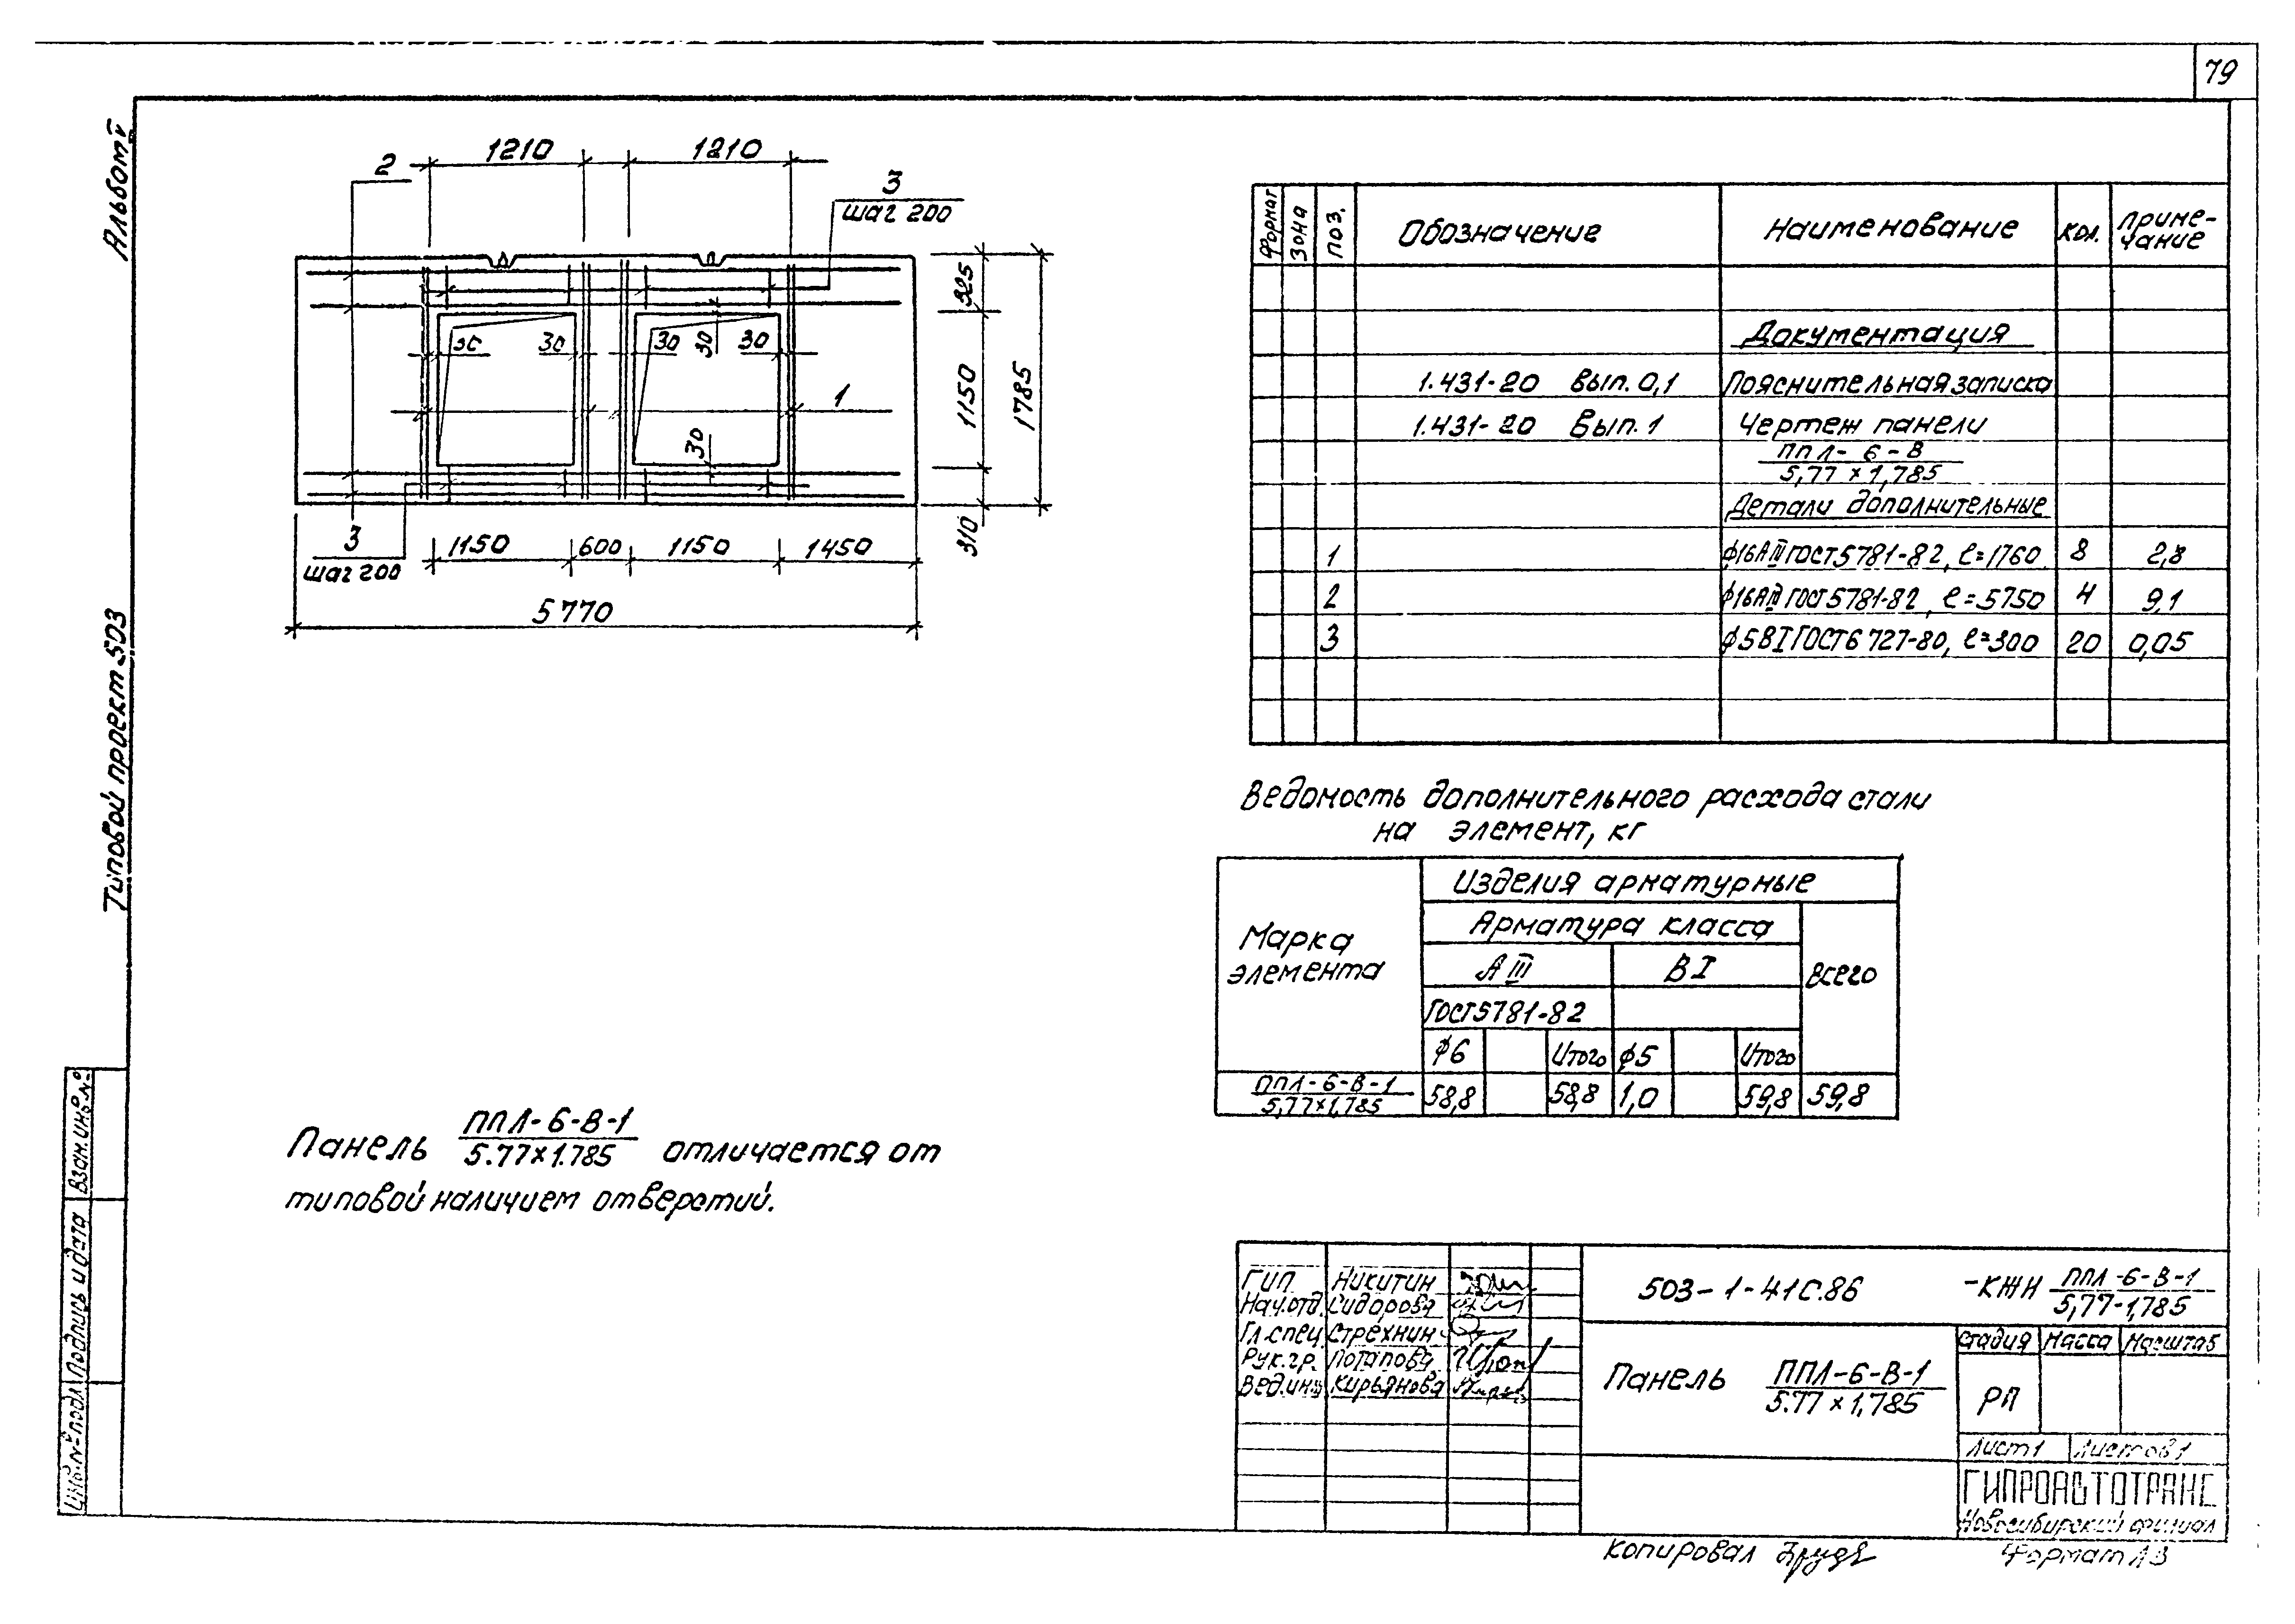 79
Альбом V
Типовой проект 503
Взам.инв.№
Подпись и дата
Инв.№ подл
1210 1210
2
3
шаг 200
325
30 30 30 30 30
1150
1785
1
30
310
3
шаг 200
1150 600 1150 1450
5770
Формат Зона Поз. Обозначение Наименование Кол. Приме-
чание
Документация
1.431-20 Вып. 0,1 Пояснительная записка
1.431-20 Вып. 1 Чертеж панели
ППЛ-6-В
5,77 х 1,785
Детали дополнительные
1 ф16АIII ГОСТ 5781-82, ℓ=1760 8 2,8
2 ф16АIII ГОСТ 5781-82, ℓ=5750 4 9,1
3 ф5ВI ГОСТ 6727-80, ℓ=300 20 0,05
Ведомость дополнительного расхода стали
на элемент, кг
Марка
элемента
Изделия арматурные
Арматура класса
АIII ВI Всего
ГОСТ 5781-82
ф6 Итого ф5 Итого
ППЛ-6-В-1
5,77х1,785
58,8 58,8 1,0 59,8 59,8
Панель ППЛ-6-В-1
5.77х1.785 отличается от
типовой наличием отверстий.
ГИП Никитин
Нач.отд. Сидорова
Гл.спец. Стрехнин
Рук.гр. Потапова
Вед.инж Кирьянова
503-1-41С.86 -КЖИ ППЛ-6-В-1
5,77-1,785
Панель ППЛ-6-В-1
5.77 х 1,785
Стадия Масса Масштаб
РП
Лист 1 Листов 1
ГИПРОАВТОТРАНС
Новосибирский филиал
Копировал
Формат А3